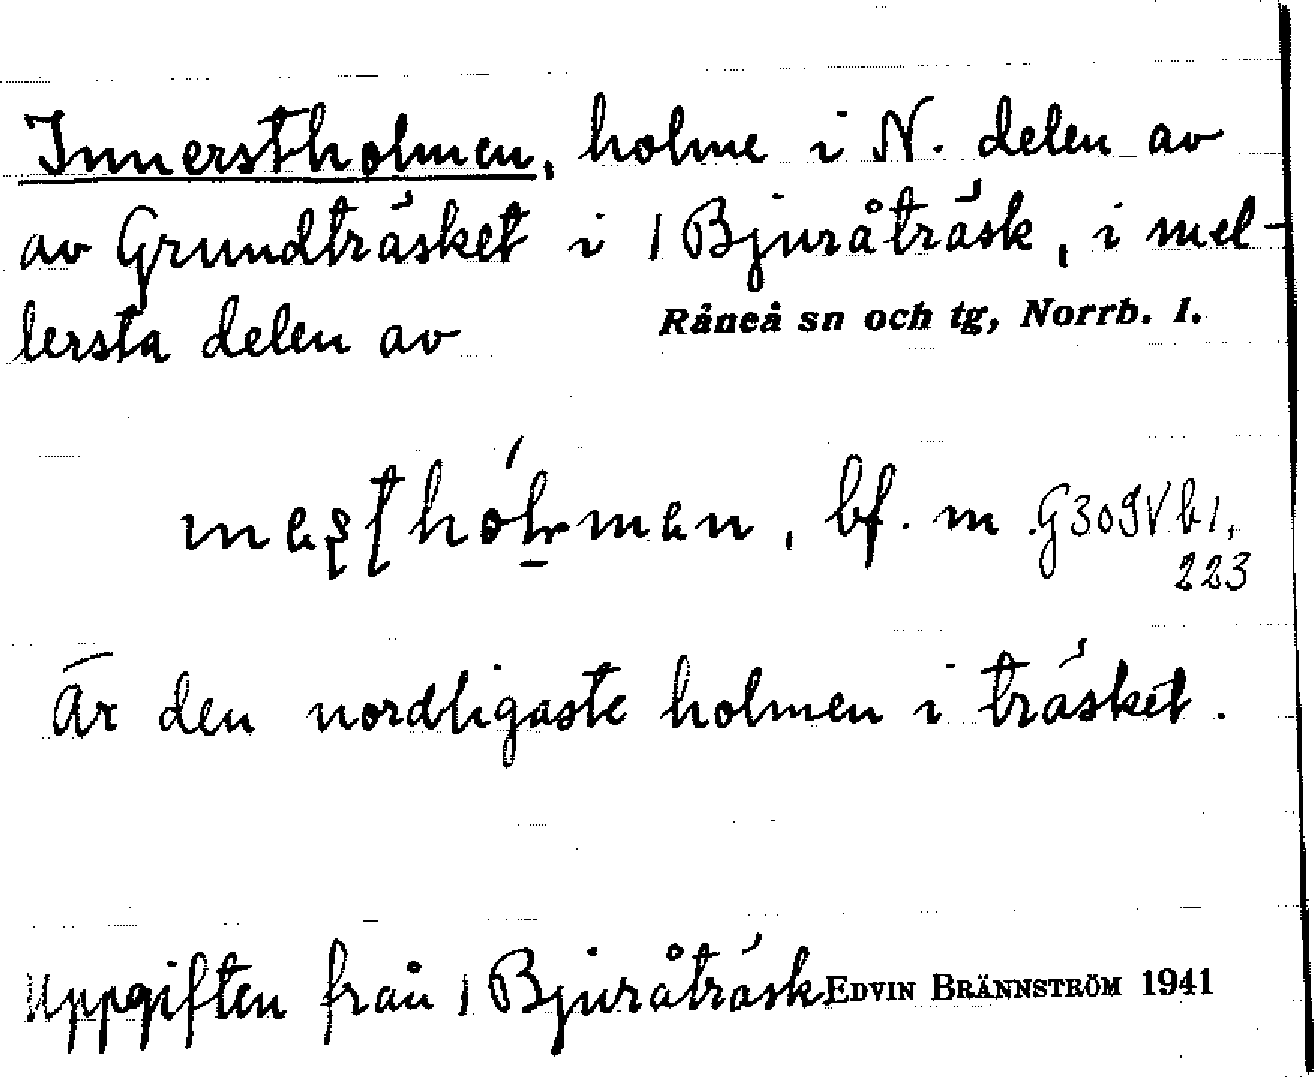 Innerstholmen, holme i N. delen av
av Grundträsket i 1 Bjuråträsk, i mel-
lersta delen av Råneå sn och tg, Norrb. l.
bf. m G309Vb1,
223
Är den nordligaste holmen i träsket.
Uppgiften från 1 Bjuråträsk EDVIN BRÄNNSTRÖM 1941